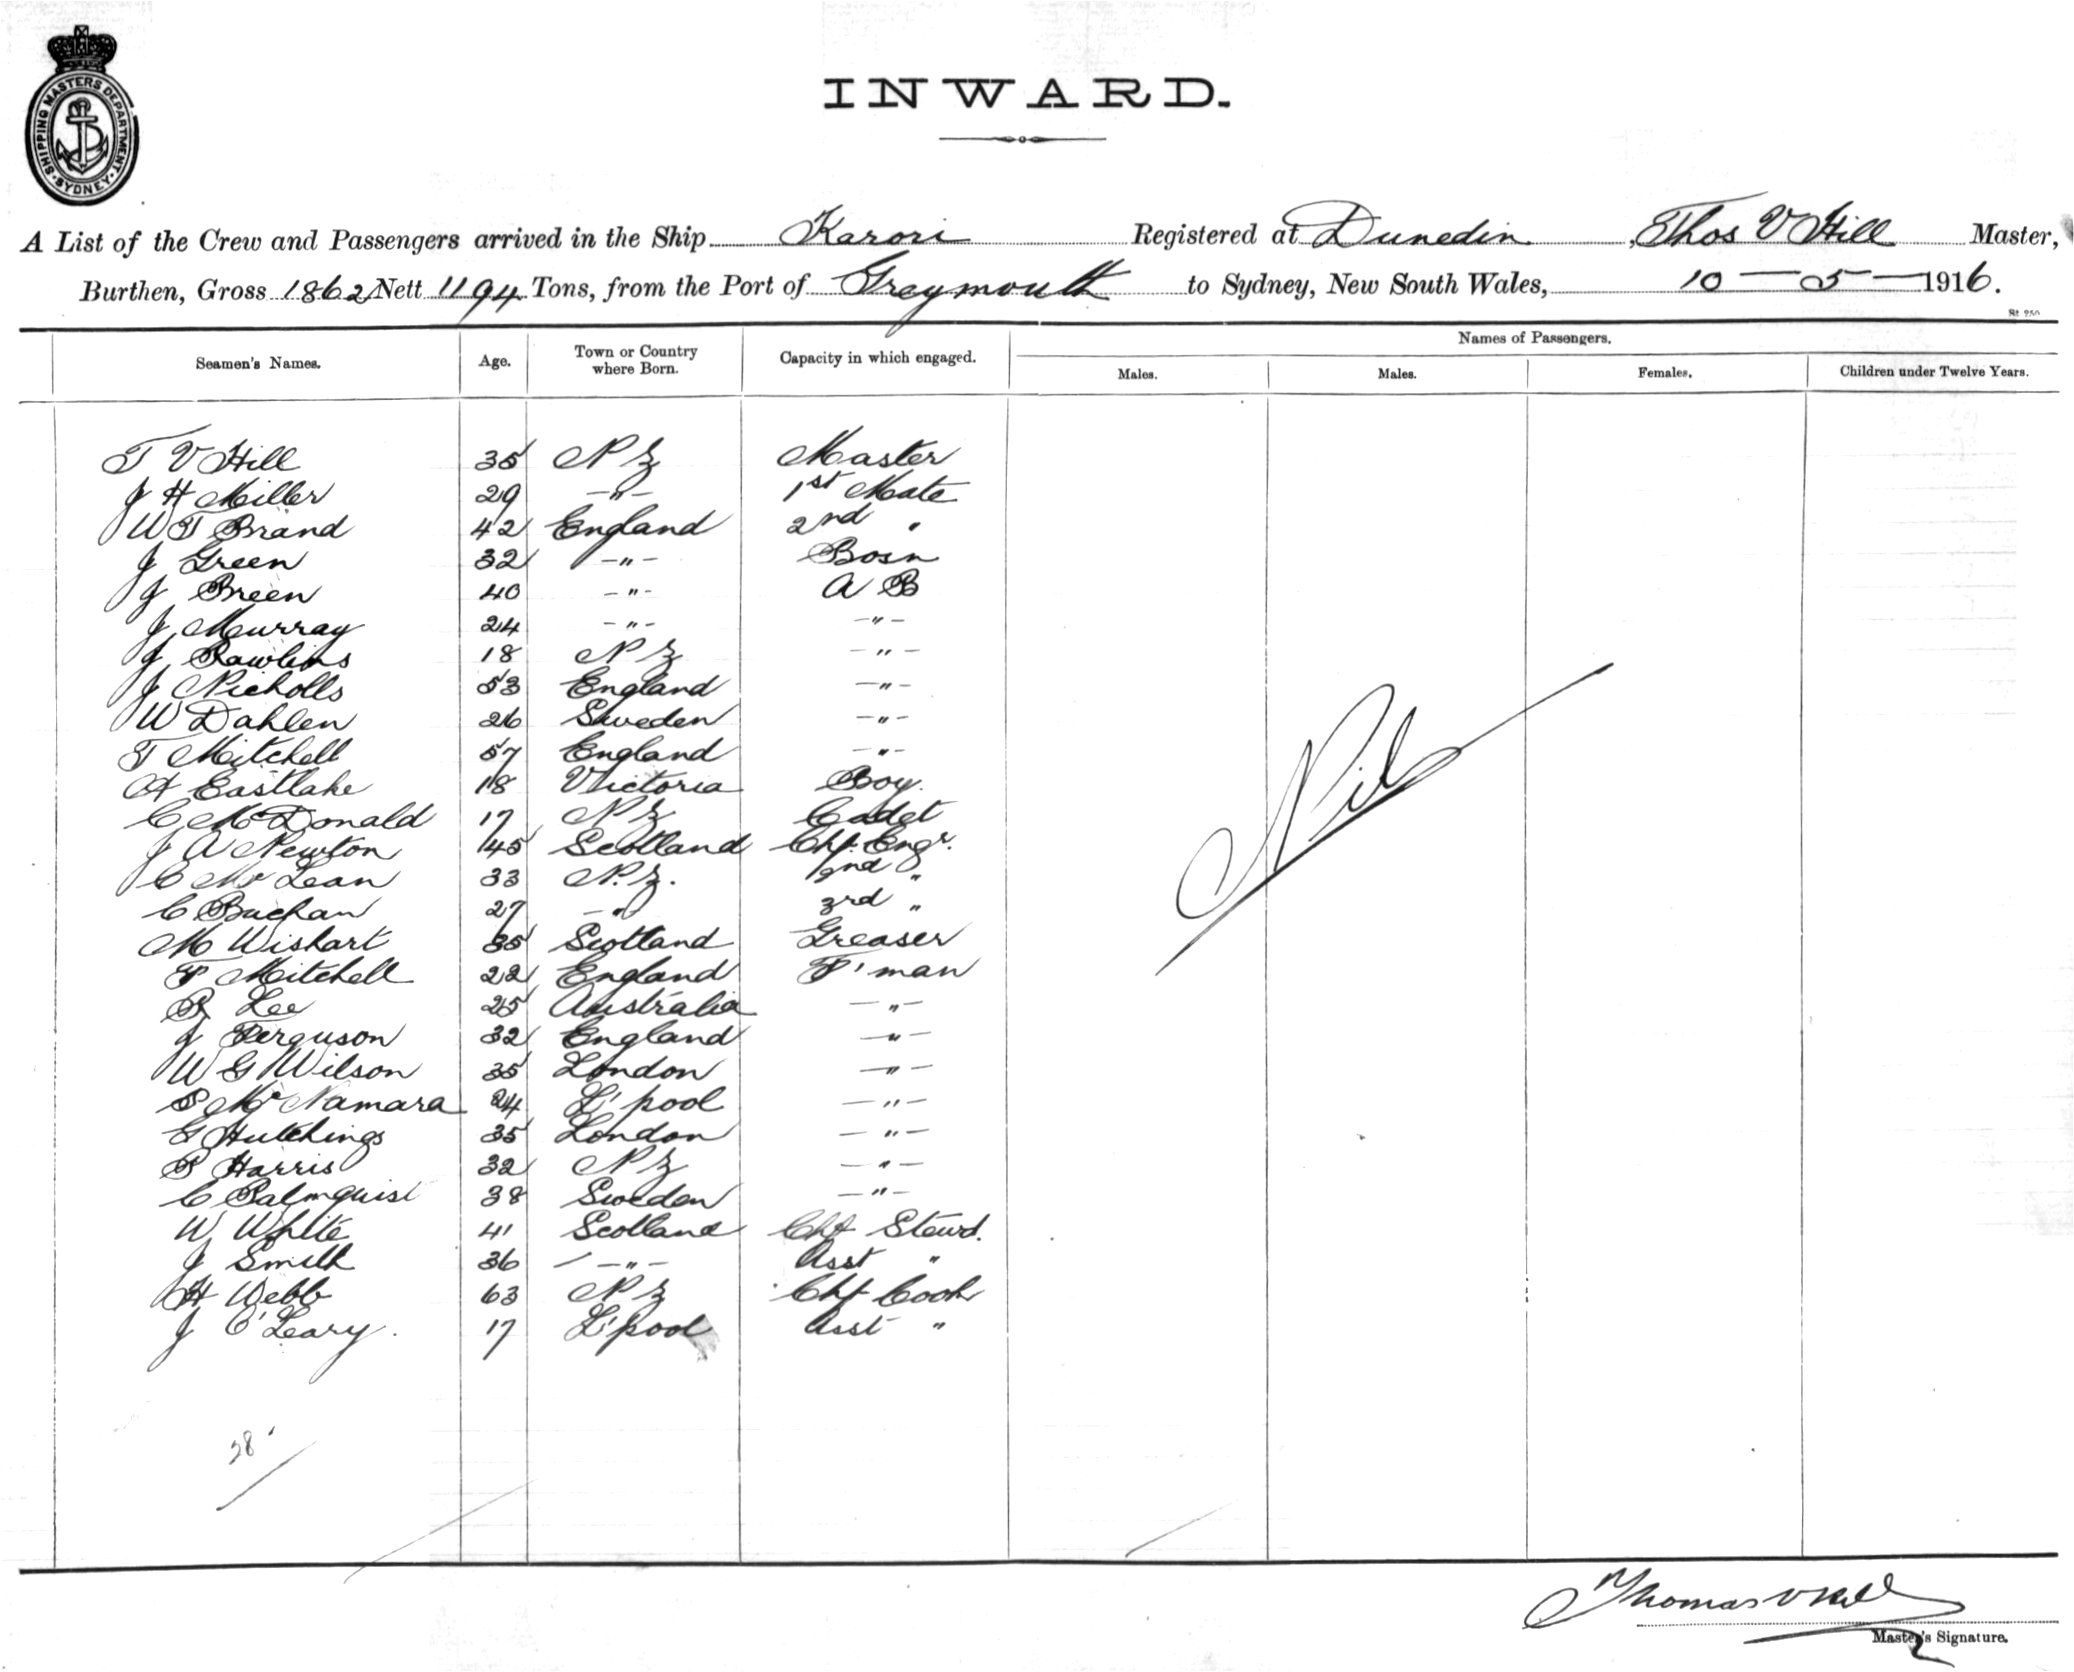 SHIPPING MASTERS DEPARTMENT · SYDNEY ·
INWARD.
A List of the Crew and Passengers arrived in the Ship Karori Registered at Dunedin, Thos V Hill Master,
Burthen, Gross 1862 Nett 1194 Tons, from the Port of Greymouth to Sydney, New South Wales, 10 — 5 — 1916.
Names of Passengers.
Seamen's Names. Age. Town or Country where Born. Capacity in which engaged. Males. Males. Females. Children under Twelve Years.
T V Hill 35 N Z Master
J H Miller 29 -"- 1st Mate
W T Brand 42 England 2nd "
J Green 32 -"- Bosn
J Breen 40 -"- A B
J Murray 24 -"- -"-
J Rawlins 18 N Z -"-
J Nicholls 53 England -"-
W Dahlen 26 Sweden -"-
T Mitchell 57 England -"-
A Eastlake 18 Victoria Boy.
C McDonald 17 N Z Cadet
J A Newton 45 Scotland Chf. Engr.
C McLean 33 N.Z. 2nd "
C Buchan 27 -"- 3rd "
M Wishart 35 Scotland Greaser
F Mitchell 22 England F'man
R Lee 25 Australia -"-
J Ferguson 32 England -"-
W G Wilson 35 London -"-
P McNamara 24 L'pool -"-
G Hutchings 35 London -"-
P Harris 32 N Z -"-
C Palmquist 38 Sweden -"-
W White 41 Scotland Chf Stewd.
J Smith 36 -"- Asst "
H Webb 63 N Z Chf Cook
J O'Leary. 17 L'pool Asst "
Nil
28
Thomas V Hill
Master's Signature.